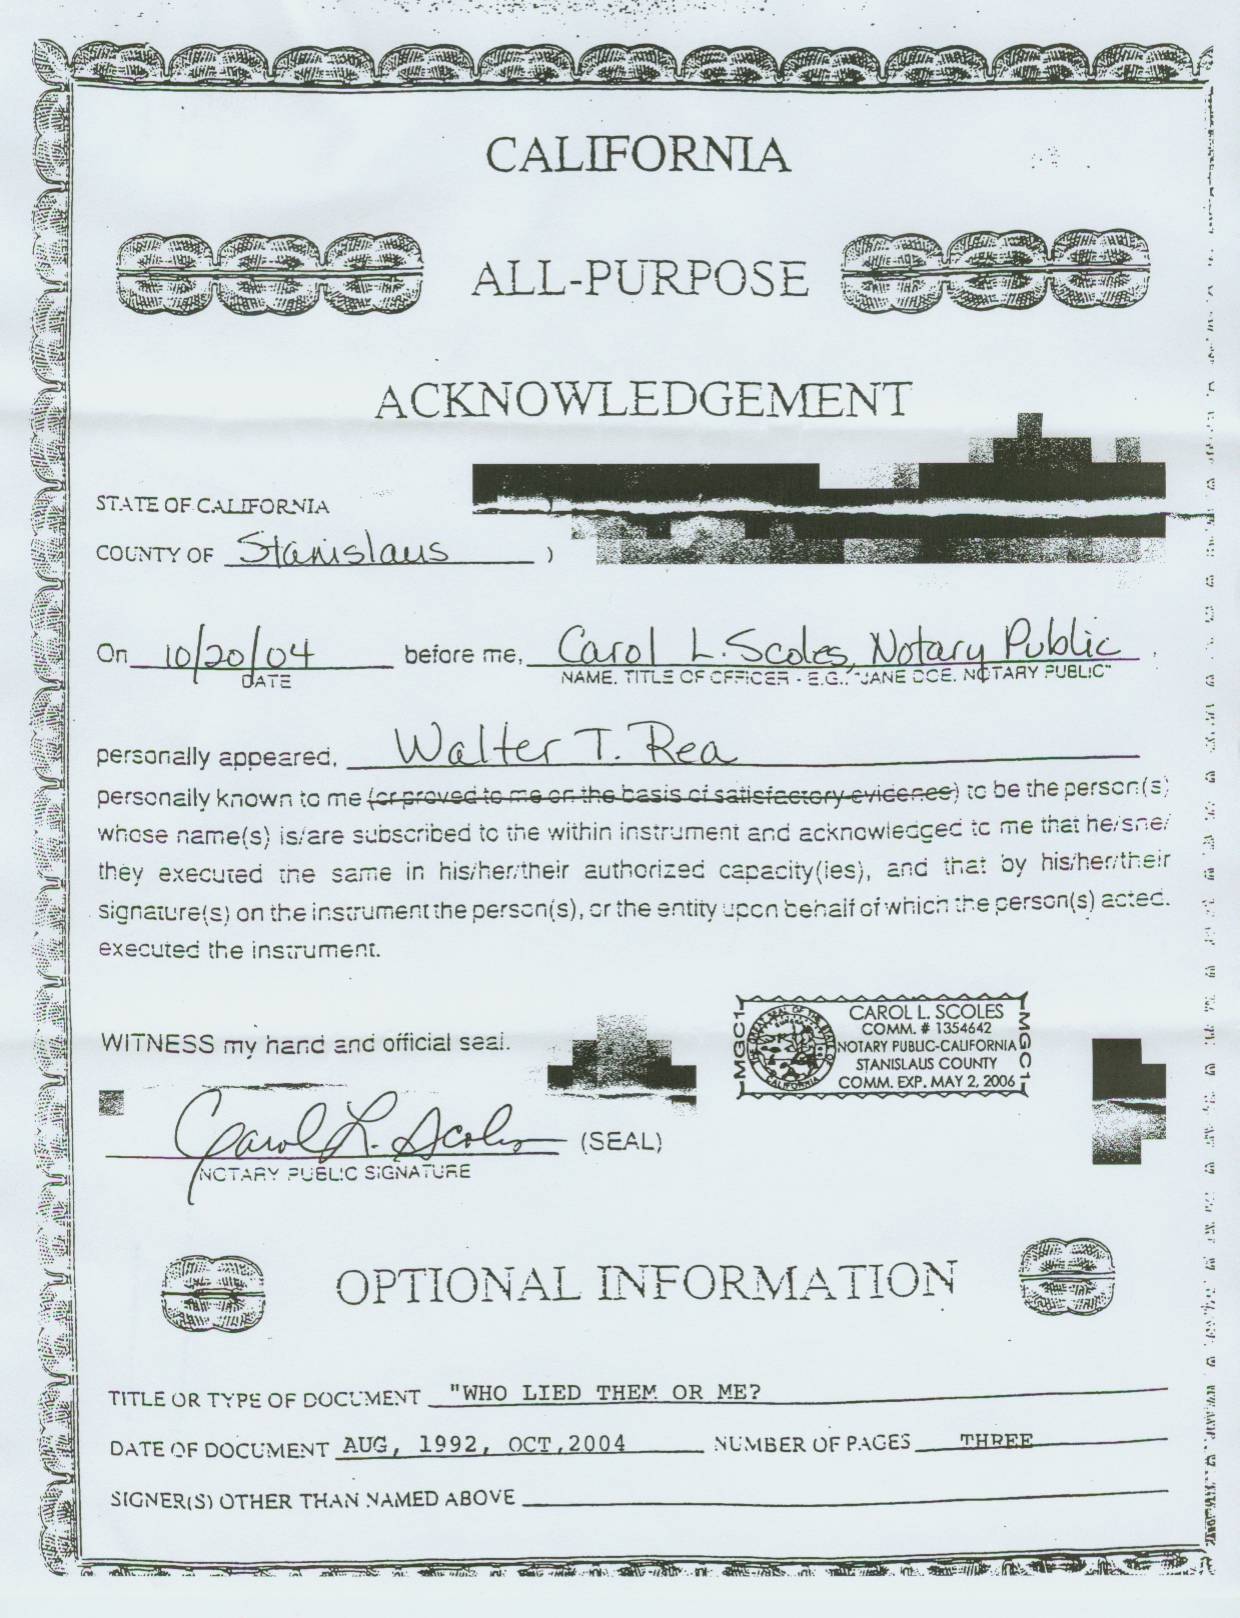 CALIFORNIA
ALL-PURPOSE
ACKNOWLEDGEMENT
STATE OF CALIFORNIA )
COUNTY OF Stanislaus )
On 10/20/04 before me, Carol L. Scoles, Notary Public,
DATE NAME, TITLE OF OFFICER - E.G., "JANE DOE, NOTARY PUBLIC"
personally appeared, Walter T. Rea
personally known to me (or proved to me on the basis of satisfactory evidence) to be the person(s)
whose name(s) is/are subscribed to the within instrument and acknowledged to me that he/she/
they executed the same in his/her/their authorized capacity(ies), and that by his/her/their
signature(s) on the instrument the person(s), or the entity upon behalf of which the person(s) acted.
executed the instrument.
WITNESS my hand and official seal.
MGC1
THE GREAT SEAL OF THE STATE OF CALIFORNIA
CAROL L. SCOLES
COMM. # 1354642
NOTARY PUBLIC-CALIFORNIA
STANISLAUS COUNTY
COMM. EXP. MAY 2, 2006
MGC1
Carol L. Scoles (SEAL)
NOTARY PUBLIC SIGNATURE
OPTIONAL INFORMATION
TITLE OR TYPE OF DOCUMENT "WHO LIED THEM OR ME?
DATE OF DOCUMENT AUG, 1992, OCT,2004 NUMBER OF PAGES THREE
SIGNER(S) OTHER THAN NAMED ABOVE